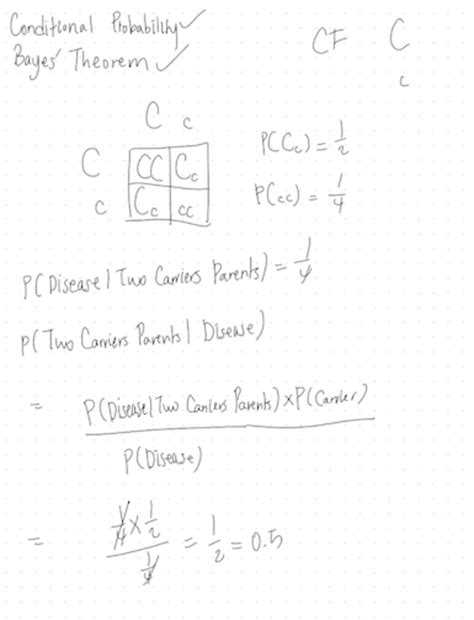 Conditional Probability ✓
Bayes' Theorem ✓
CF C
c
C c
C CC Cc
c Cc cc
P(Cc) = 1/2
P(cc) = 1/4
P(Disease | Two Carriers Parents) = 1/4
P(Two Carriers Parents | Disease)
= P(Disease | Two Carriers Parents) × P(Carrier)
P(Disease)
= 1/4 × 1/2
1/4
= 1/2 = 0.5